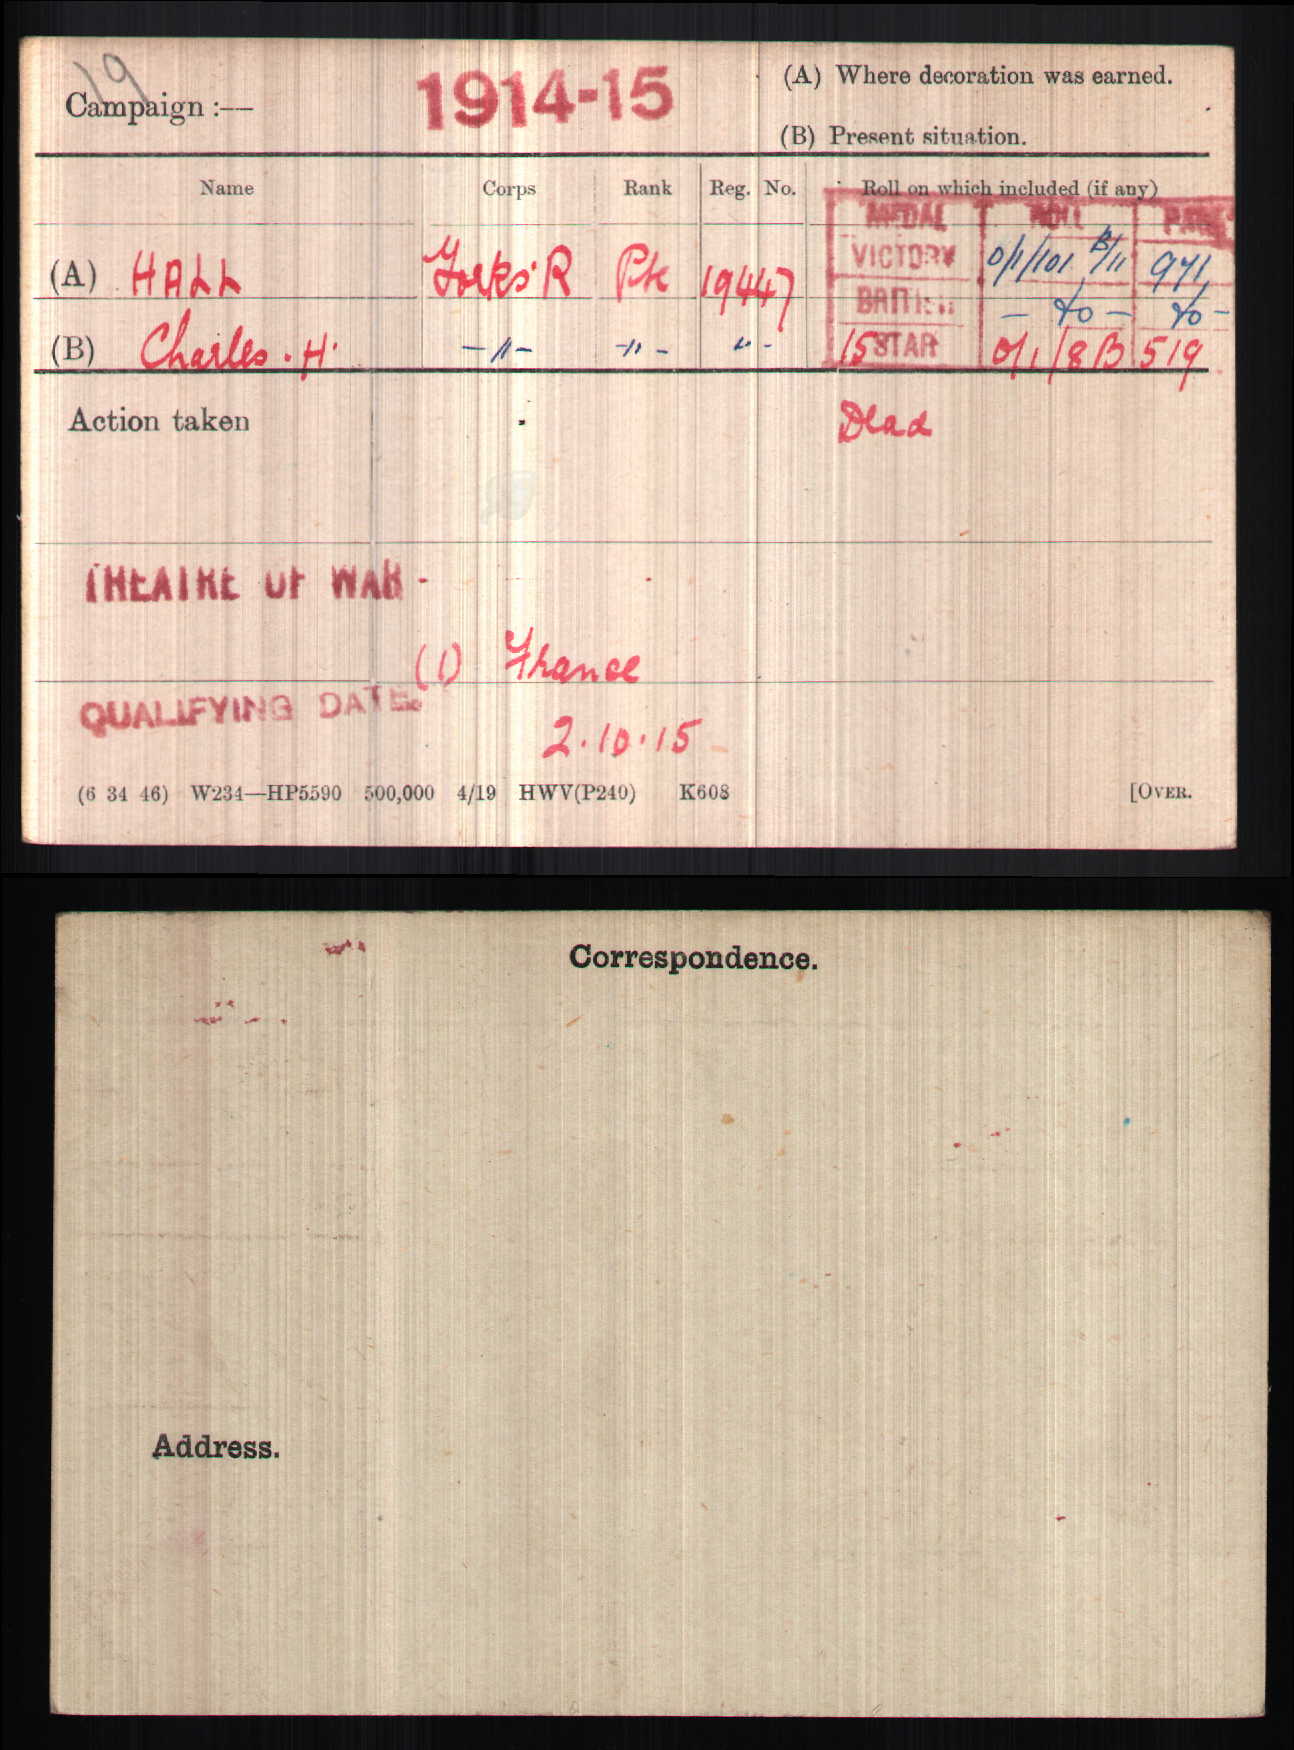 19
Campaign :— 1914-15 (A) Where decoration was earned.
(B) Present situation.
Name Corps Rank Reg. No. Roll on which included (if any)
MEDAL ROLL PAGE
(A) HALL Yorks. R Pte 19447 VICTORY 0/1/101 B/11 971
BRITISH — do — do —
(B) Charles. H. —"— —"— "— 15 STAR 0/1/8B 519
Action taken Dead
THEATRE OF WAR.
(1) France
QUALIFYING DATE.
2.10.15
(6 34 46) W234—HP5590 500,000 4/19 HWV(P240) K608 [OVER.
Correspondence.
Address.